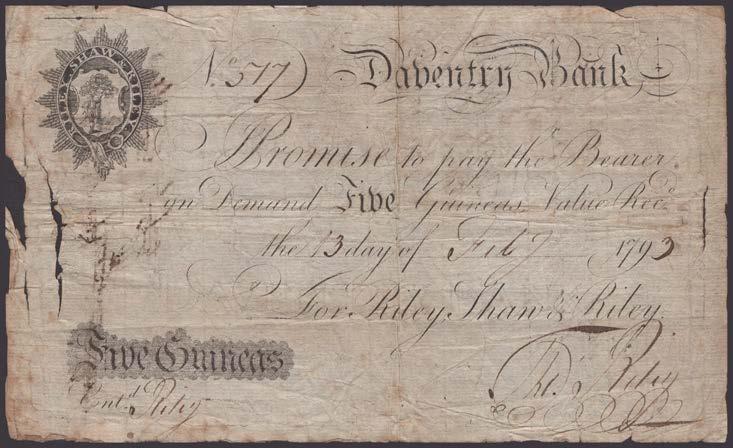 RILEY SHAW & RILEY
No. 517 Daventry Bank
I Promise to pay the Bearer
on Demand Five Guineas Value Recd.
the 13 day of Feby 1793
For Riley, Shaw & Riley
Five Guineas
Entd. Riley
Rd. Riley